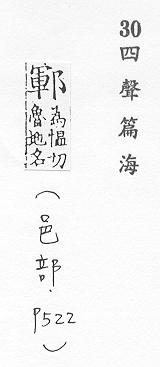 30四聲篇海
鄆
為愠切
魯地名
(邑部.P522)